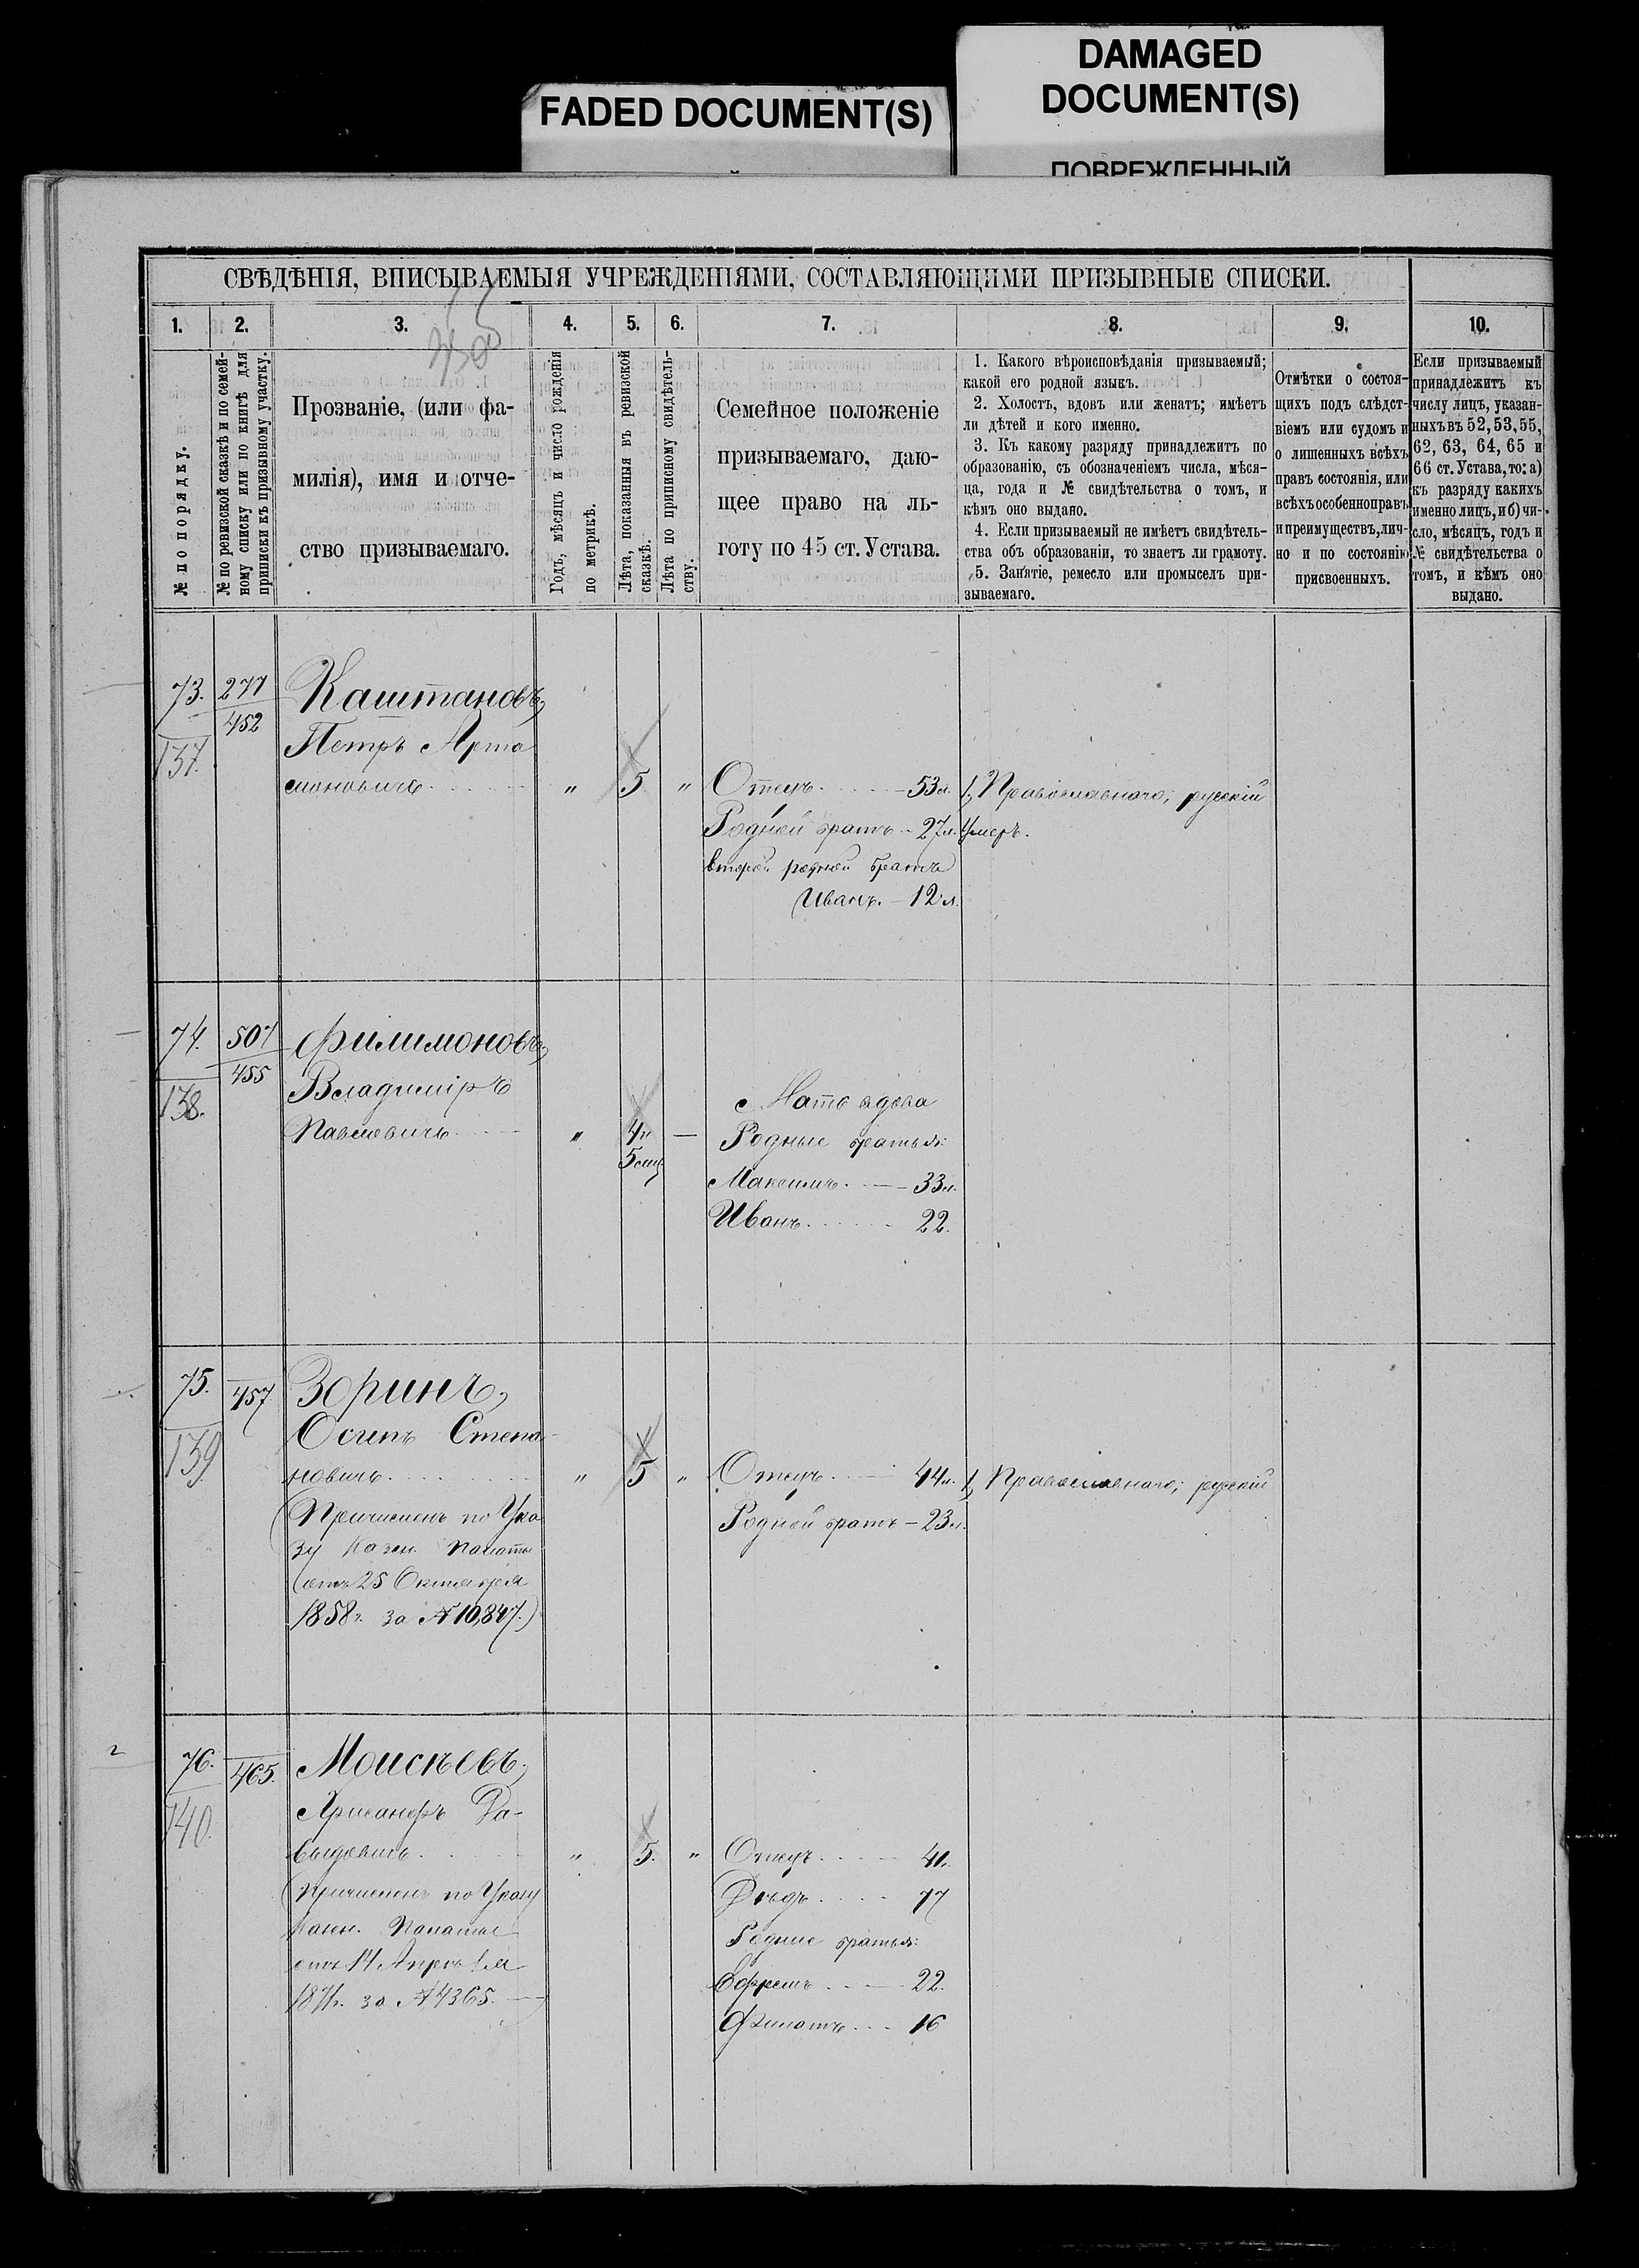 FADED DOCUMENT(S)
DAMAGED
DOCUMENT(S)
ПОВРЕЖДЕННЫЙ
СВѢДѢНІЯ, ВПИСЫВАЕМЫЯ УЧРЕЖДЕНІЯМИ, СОСТАВЛЯЮЩИМИ ПРИЗЫВНЫЕ СПИСКИ.
1. 2. 3. 4. 5. 6. 7. 8. 9. 10.
№ по порядку.
№ по ревизской сказкѣ и по семей-
ному списку или по книгѣ для
приписки къ призывному участку.
Прозваніе, (или фа-
милія), имя и отче-
ство призываемаго.
Годъ, мѣсяцъ и число рожденія
по метрикѣ.
Лѣта, показанныя въ ревизской
сказкѣ.
Лѣта по приписному свидѣтель-
ству.
Семейное положеніе
призываемаго, даю-
щее право на ль-
готу по 45 ст. Устава.
1. Какого вѣроисповѣданія призываемый;
какой его родной языкъ.
2. Холостъ, вдовъ или женатъ; имѣетъ
ли дѣтей и кого именно.
3. Къ какому разряду принадлежитъ по
образованію, съ обозначеніемъ числа, мѣся-
ца, года и № свидѣтельства о томъ, и
кѣмъ оно выдано.
4. Если призываемый не имѣетъ свидѣтель-
ства объ образованіи, то знаетъ ли грамоту.
5. Занятіе, ремесло или промыселъ при-
зываемаго.
Отмѣтки о состоя-
щихъ подъ слѣдст-
віемъ или судомъ и
о лишенныхъ всѣхъ
правъ состоянія, или
всѣхъ особенно правъ
и преимуществъ, лич-
но и по состоянію
присвоенныхъ.
Если призываемый
принадлежитъ къ
числу лицъ, указан-
ныхъ въ 52, 53, 55,
62, 63, 64, 65 и
66 ст. Устава, то: а)
къ разряду какихъ
именно лицъ, и б) чи-
сло, мѣсяцъ, годъ и
№ свидѣтельства о
томъ, и кѣмъ оно
выдано.
73. 277 Каштановъ,
452
137. Петръ Арта
моновичъ " 5 " Отецъ 53 л. 1, Православнаго, русскій
Родной братъ 27 л. Умеръ.
второй родной братъ
Иванъ. 12 л.
74. 507 Филимоновъ,
455
138. Владиміръ
Мать вдова
Павловичъ " 4 — Родные братья:
5
Максимъ 33 л.
Иванъ 22.
75. 457 Зоринъ,
139 Осипъ Степа-
новичъ " 5 " Отецъ 44 л. 1, Православнаго, русскій
(Причисленъ по Ука
Родной братъ 23 л.
зу Казен. Палаты
отъ 25 Октября
1858 г. за № 10,847.)
76. 465. Моисѣевъ,
140. Хрисанфъ Да-
выдовичъ " 5. " Отецъ 41.
(Причисленъ по Указу
Дѣдъ 77
Казен. Палаты
Родные братья:
отъ 14 Апрѣля
Ефремъ 22.
1871 г. за № 4365.
Филатъ 16